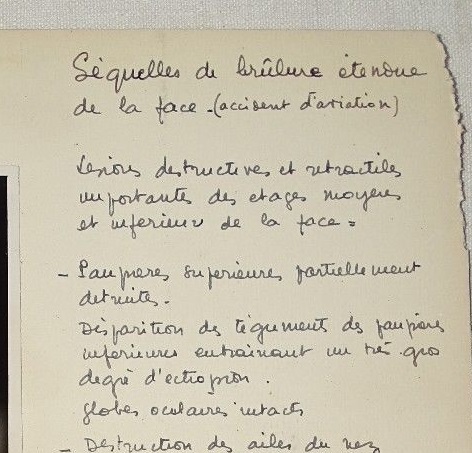 Séquelles de brûlure étendue
de la face - (accident d'aviation)
Lésions destructives et rétractiles
importantes des étages moyens
et inférieur de la face =
- Paupières supérieures partiellement
détruites.
Disparition des téguments des paupières
inférieures entrainant un très gros
degré d'ectropion.
globes oculaires intacts
- Destruction des ailes du nez